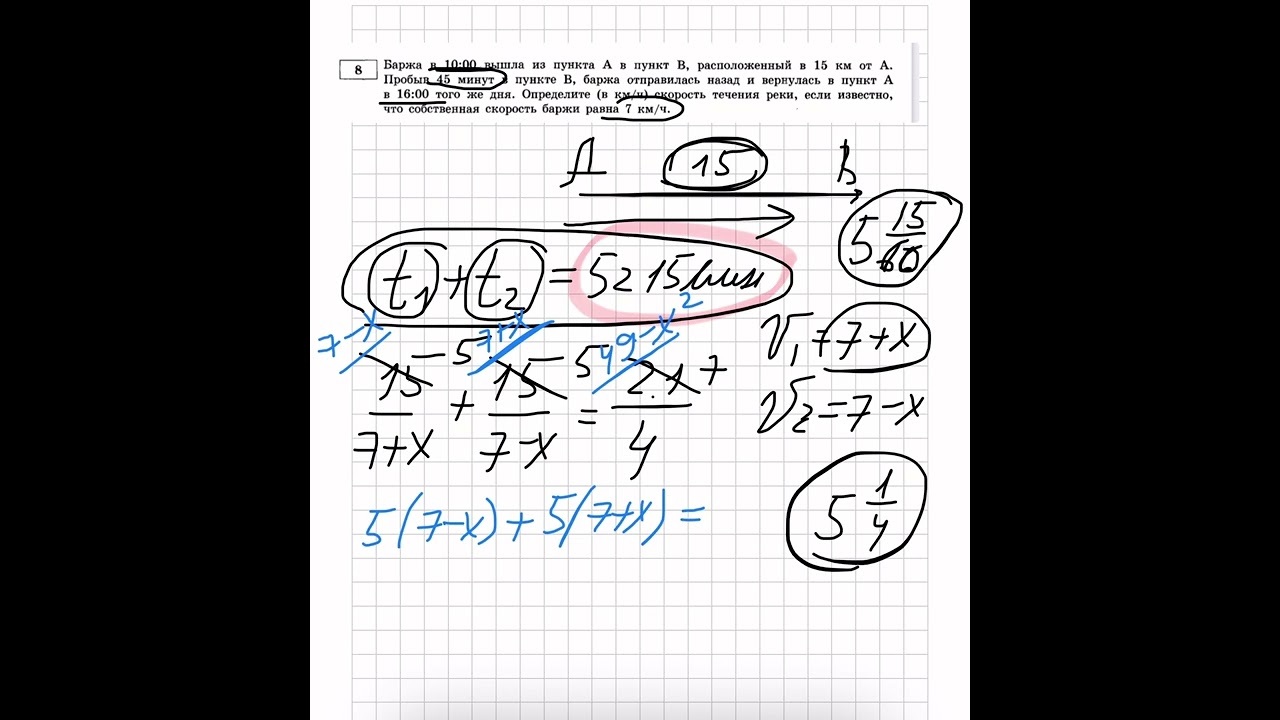 8
Баржа в 10:00 вышла из пункта А в пункт В, расположенный в 15 км от А.
Пробыв 45 минут в пункте В, баржа отправилась назад и вернулась в пункт А
в 16:00 того же дня. Определите (в км/ч) скорость течения реки, если известно,
что собственная скорость баржи равна 7 км/ч.
A 15 B
5 15/60
t₁ + t₂ = 5г 15мин
7-x 7+x 49-x²
15 - 5 15 - 5 21 7
7+x + 7-x = 4
V₁ = 7+x
V₂ = 7-x
5 1/4
5(7-x) + 5(7+x) =